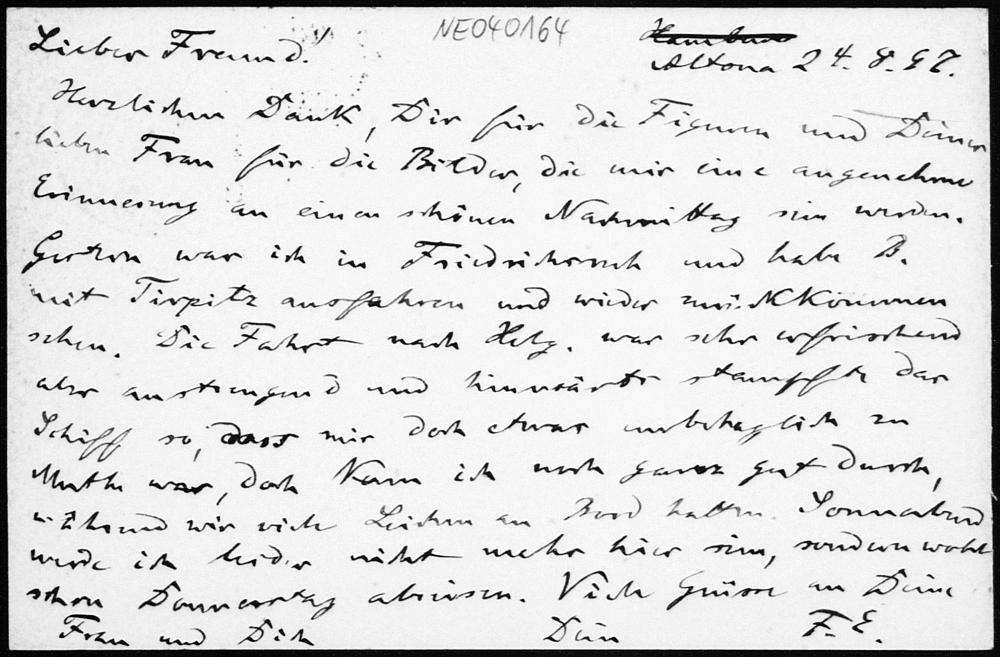 NE040164
Lieber Freund!
Hamburg
Altona 24.8.97.
Herzlichen Dank, Dir für die Figuren und Deiner
lieben Frau für die Bilder, die mir eine angenehme
Erinnerung an einen schönen Nachmittag sein werden.
Gestern war ich in Friedrichsruh und habe B.
mit Tirpitz ausfahren und wieder zurückkommen
sehen. Die Fahrt nach Helg. war sehr erfrischend
aber anstrengend und hinwärts stampfte das
Schiff so, dass mir doch etwas unbehaglich zu
Muthe war, doch kam ich noch ganz gut durch,
während wir viele Leichen an Bord hatten. Sonnabend
werde ich leider nicht mehr hier sein, sondern wohl
schon Donnerstag abreisen. Viele Grüsse an Deine
Frau und Dich Dein F. E.